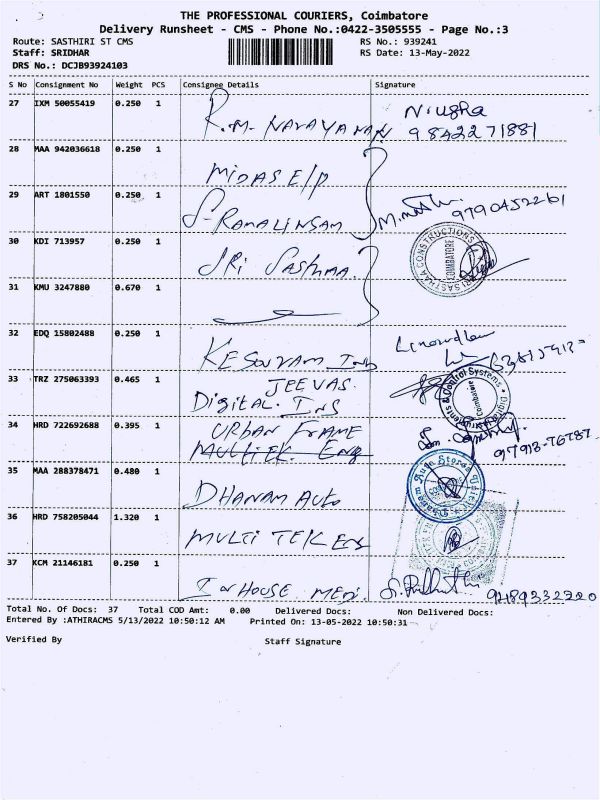 THE PROFESSIONAL COURIERS, Coimbatore
Delivery Runsheet - CMS - Phone No.:0422-3505555 - Page No.:3
Route: SASTHIRI ST CMS RS No.: 939241
Staff: SRIDHAR RS Date: 13-May-2022
DRS No.: DCJB93924103
S No Consignment No Weight PCS Consignee Details Signature
27 IXM 50055419 0.250 1 R.M. NARAYANAN 9842271881
28 MAA 942036618 0.250 1 MIDAS E/P
29 ART 1801550 0.250 1 S-RAMALINGAM 9790452261
30 KDI 713957 0.250 1 SRi Sasthaa
SRI SASTHAA CONSTRUCTIONS COIMBATORE
31 KMU 3247880 0.670 1
32 EDQ 15802488 0.250 1 KESOURAM Ind
33 TRZ 275063393 0.465 1 JEEVAS
Digital. Ins
Control Systems Coimbatore
34 HRD 722692688 0.395 1 URBAN FRAME
MULTITEK Eng
35 MAA 288378471 0.480 1 DHANAM Auto
36 HRD 758205044 1.320 1 MULTI TEK Eng
37 KCM 21146181 0.250 1 INHOUSE MEDI.
Total No. Of Docs: 37 Total COD Amt: 0.00 Delivered Docs: Non Delivered Docs:
Entered By :ATHIRACMS 5/13/2022 10:50:12 AM Printed On: 13-05-2022 10:50:31
Verified By Staff Signature